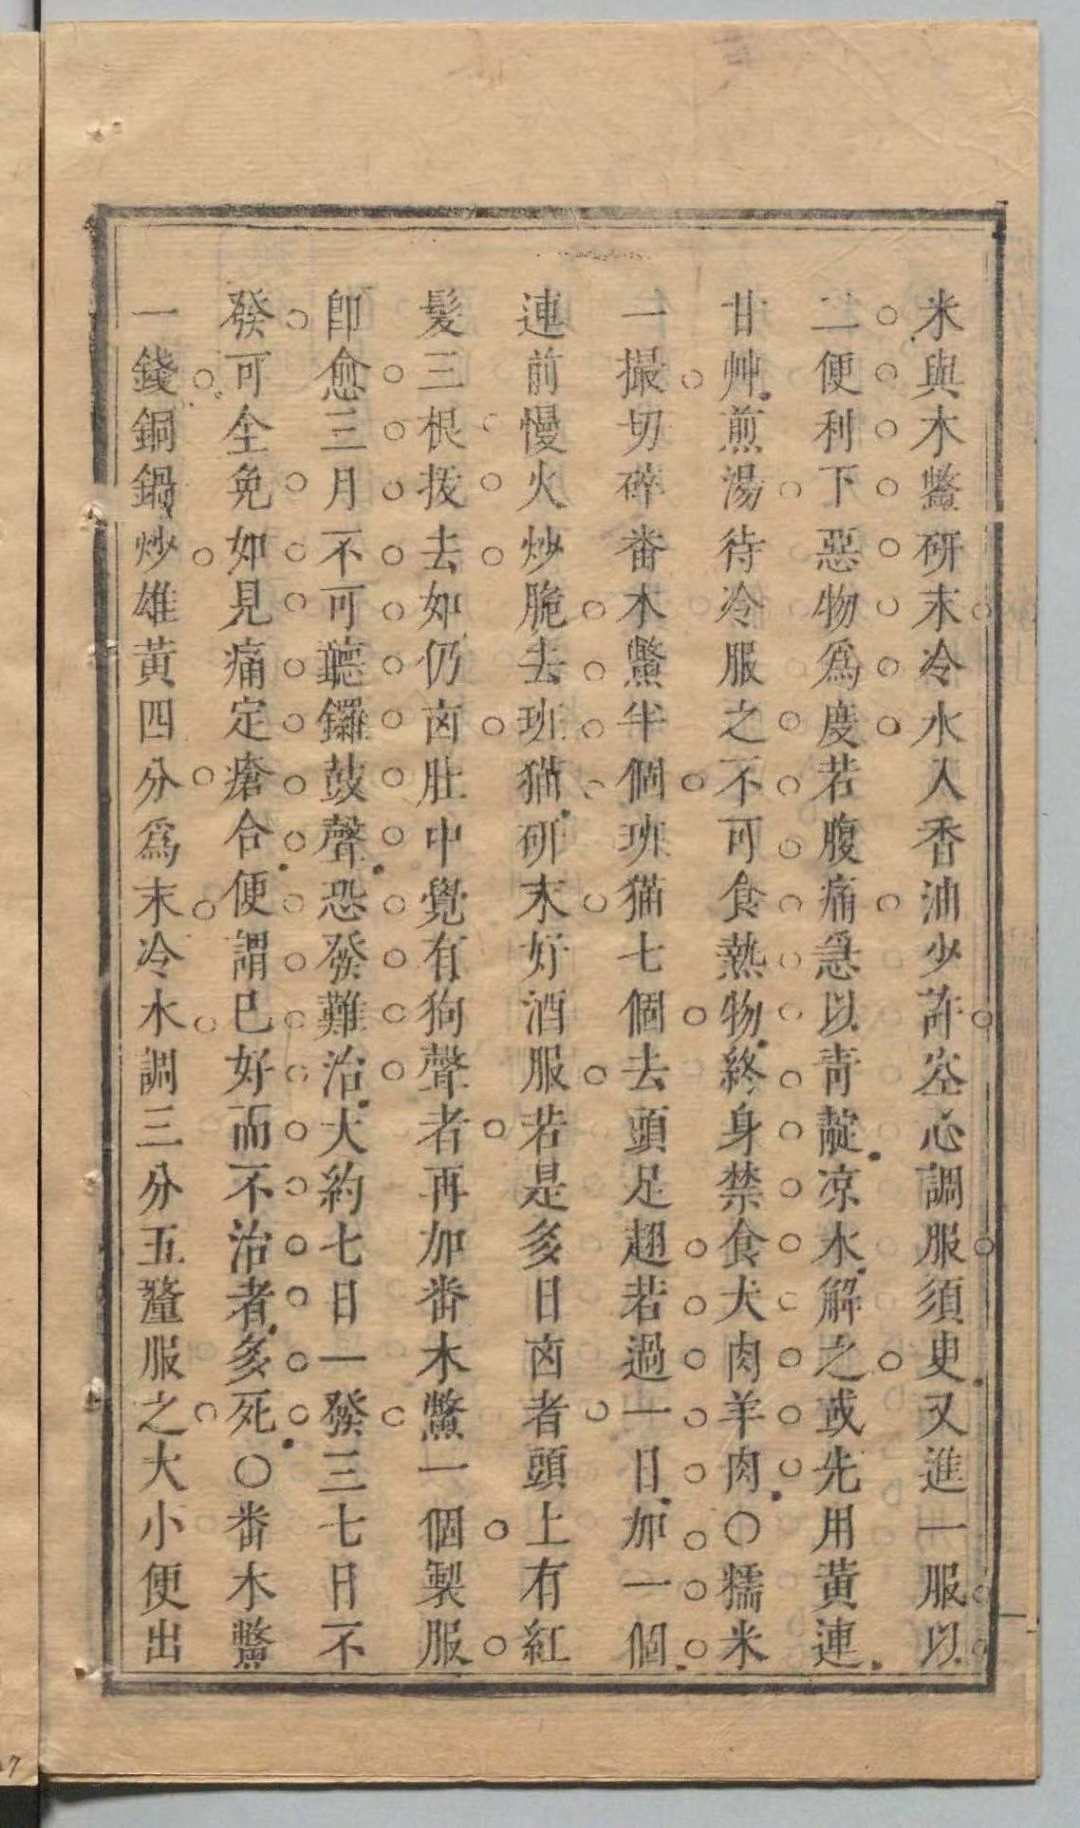 米與木鱉研末冷水入香油少許空心調服須臾又進一服以
二便利下惡物爲度若腹痛急以青靛凉水解之或先用黃連
甘艸煎湯待冷服之不可食熱物終身禁食犬肉羊肉〇糯米
一撮切碎番木鱉半個班猫七個去頭足翅若過一日加一個
連前慢火炒脆去班猫研末好酒服若是多日囟者頭上有紅
髮三根拔去如仍囟肚中覺有狗聲者再加番木鱉一個製服
卽愈三月不可聽鑼鼓聲恐發難治大約七日一發三七日不
發可全免如見痛定瘡合便謂已好而不治者多死〇番木鱉
一錢銅鍋炒雄黃四分爲末冷水調三分五釐服之大小便出
27